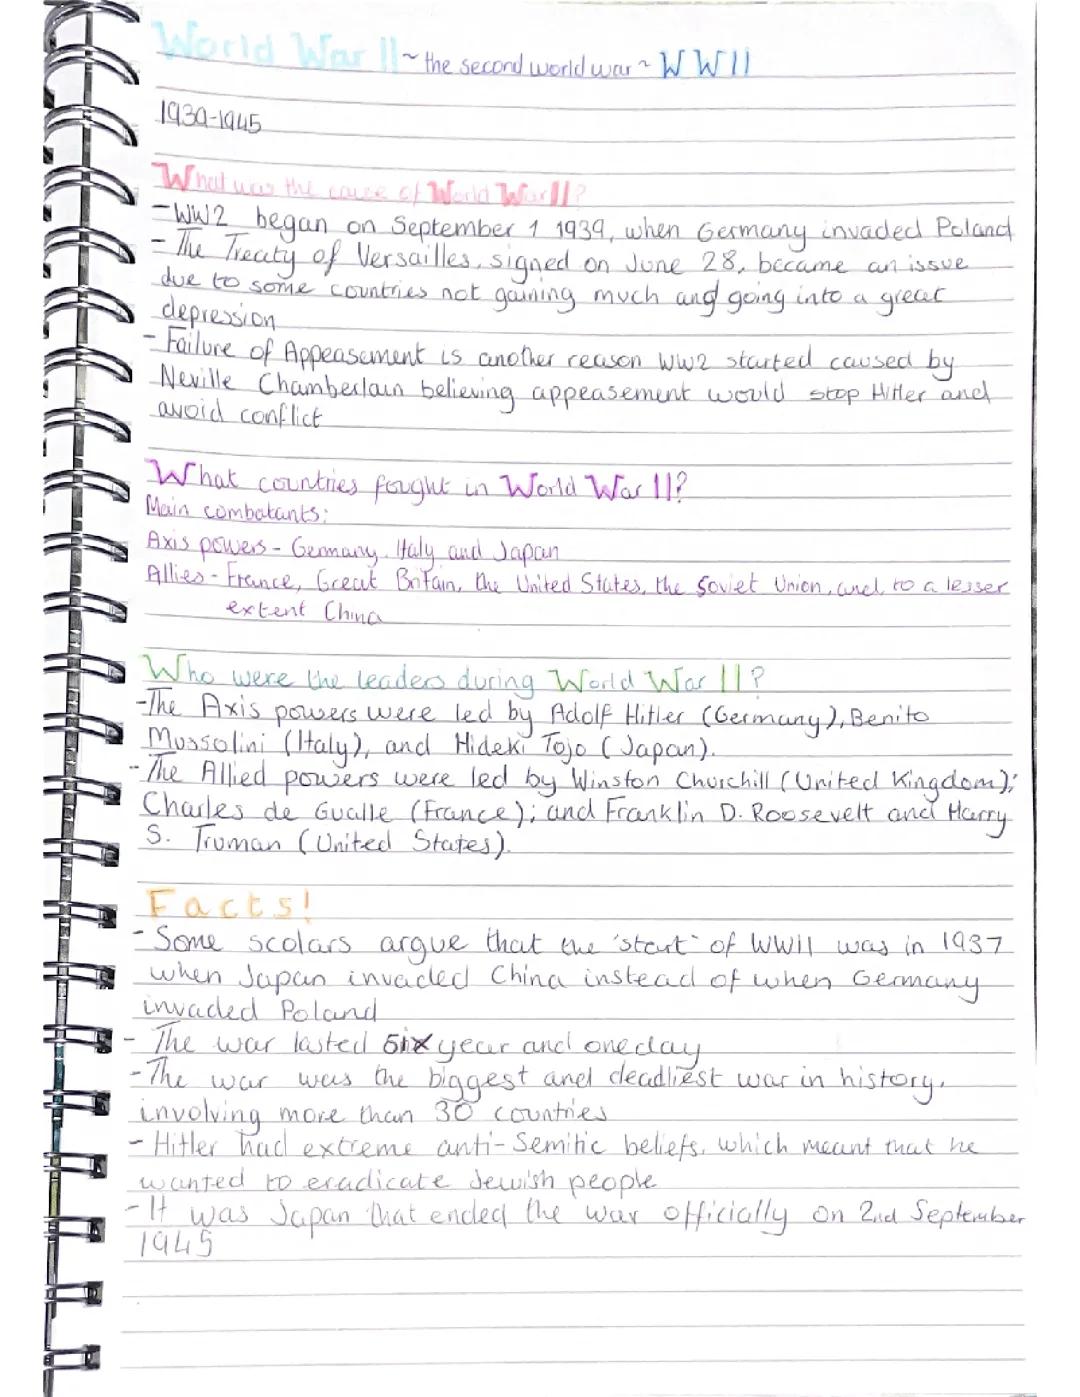 World War II ~ the second world war ~ WWII
1939-1945
What was the cause of World War II?
- WW2 began on September 1 1939, when Germany invaded Poland
- The Treaty of Versailles, signed on June 28, became an issue
due to some countries not gaining much and going into a great
depression
- Failure of Appeasement is another reason WW2 started caused by
Neville Chamberlain believing appeasement would stop Hitler and
avoid conflict
What countries fought in World War II?
Main combatants:
Axis powers - Germany, Italy and Japan
Allies - France, Great Britain, the United States, the Soviet Union, and, to a lesser
extent China
Who were the leaders during World War II?
- The Axis powers were led by Adolf Hitler (Germany), Benito
Mussolini (Italy), and Hideki Tojo (Japan).
- The Allied powers were led by Winston Churchill (United Kingdom);
Charles de Gualle (France); and Franklin D. Roosevelt and Harry
S. Truman (United States).
Facts!
- Some scolars argue that the 'start' of WWII was in 1937
when Japan invaded China instead of when Germany
invaded Poland
- The war lasted six year and one day
- The war was the biggest and deadliest war in history,
involving more than 30 countries
- Hitler had extreme anti-Semitic beliefs, which meant that he
wanted to eradicate Jewish people
- It was Japan that ended the war officially on 2nd September
1945